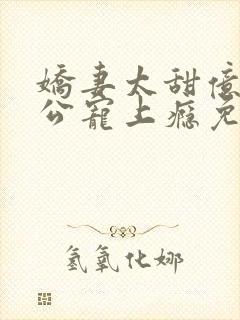 嬌妻太甜億
公寵上癮免
氢氧化娜